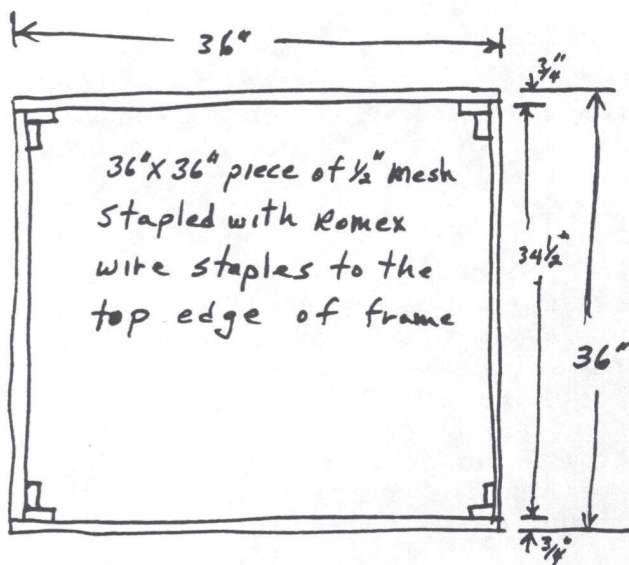 36"
3/4"
36"X36" piece of 1/2" mesh
Stapled with Romex
wire staples to the
top edge of frame
34 1/2"
36"
3/4"